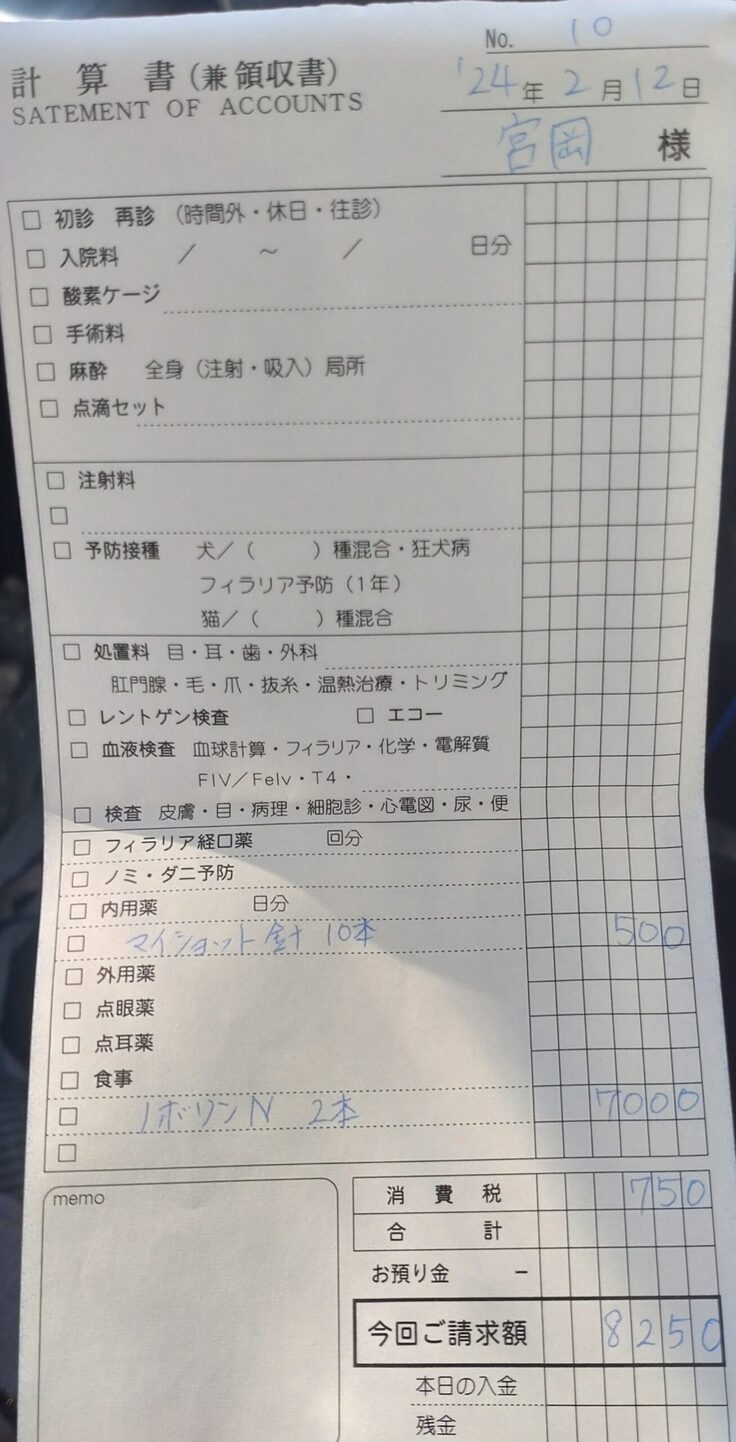 No. 10
計算書(兼領収書)
SATEMENT OF ACCOUNTS
'24年2月12日
宮岡 様
□ 初診 再診 (時間外・休日・往診)
□ 入院料 / ~ / 日分
□ 酸素ケージ
□ 手術料
□ 麻酔 全身(注射・吸入)局所
□ 点滴セット
□ 注射料
□
□ 予防接種 犬/( )種混合・狂犬病
フィラリア予防(1年)
猫/( )種混合
□ 処置料 目・耳・歯・外科
肛門腺・毛・爪・抜糸・温熱治療・トリミング
□ レントゲン検査 □ エコー
□ 血液検査 血球計算・フィラリア・化学・電解質
FIV/Felv・T4・
□ 検査 皮膚・目・病理・細胞診・心電図・尿・便
□ フィラリア経口薬 回分
□ ノミ・ダニ予防
□ 内用薬 日分
□ マイショット針 10本 500
□ 外用薬
□ 点眼薬
□ 点耳薬
□ 食事
□ ノボリンN 2本 7000
□
memo
消費税 750
合計
お預り金 −
今回ご請求額 8250
本日の入金
残金